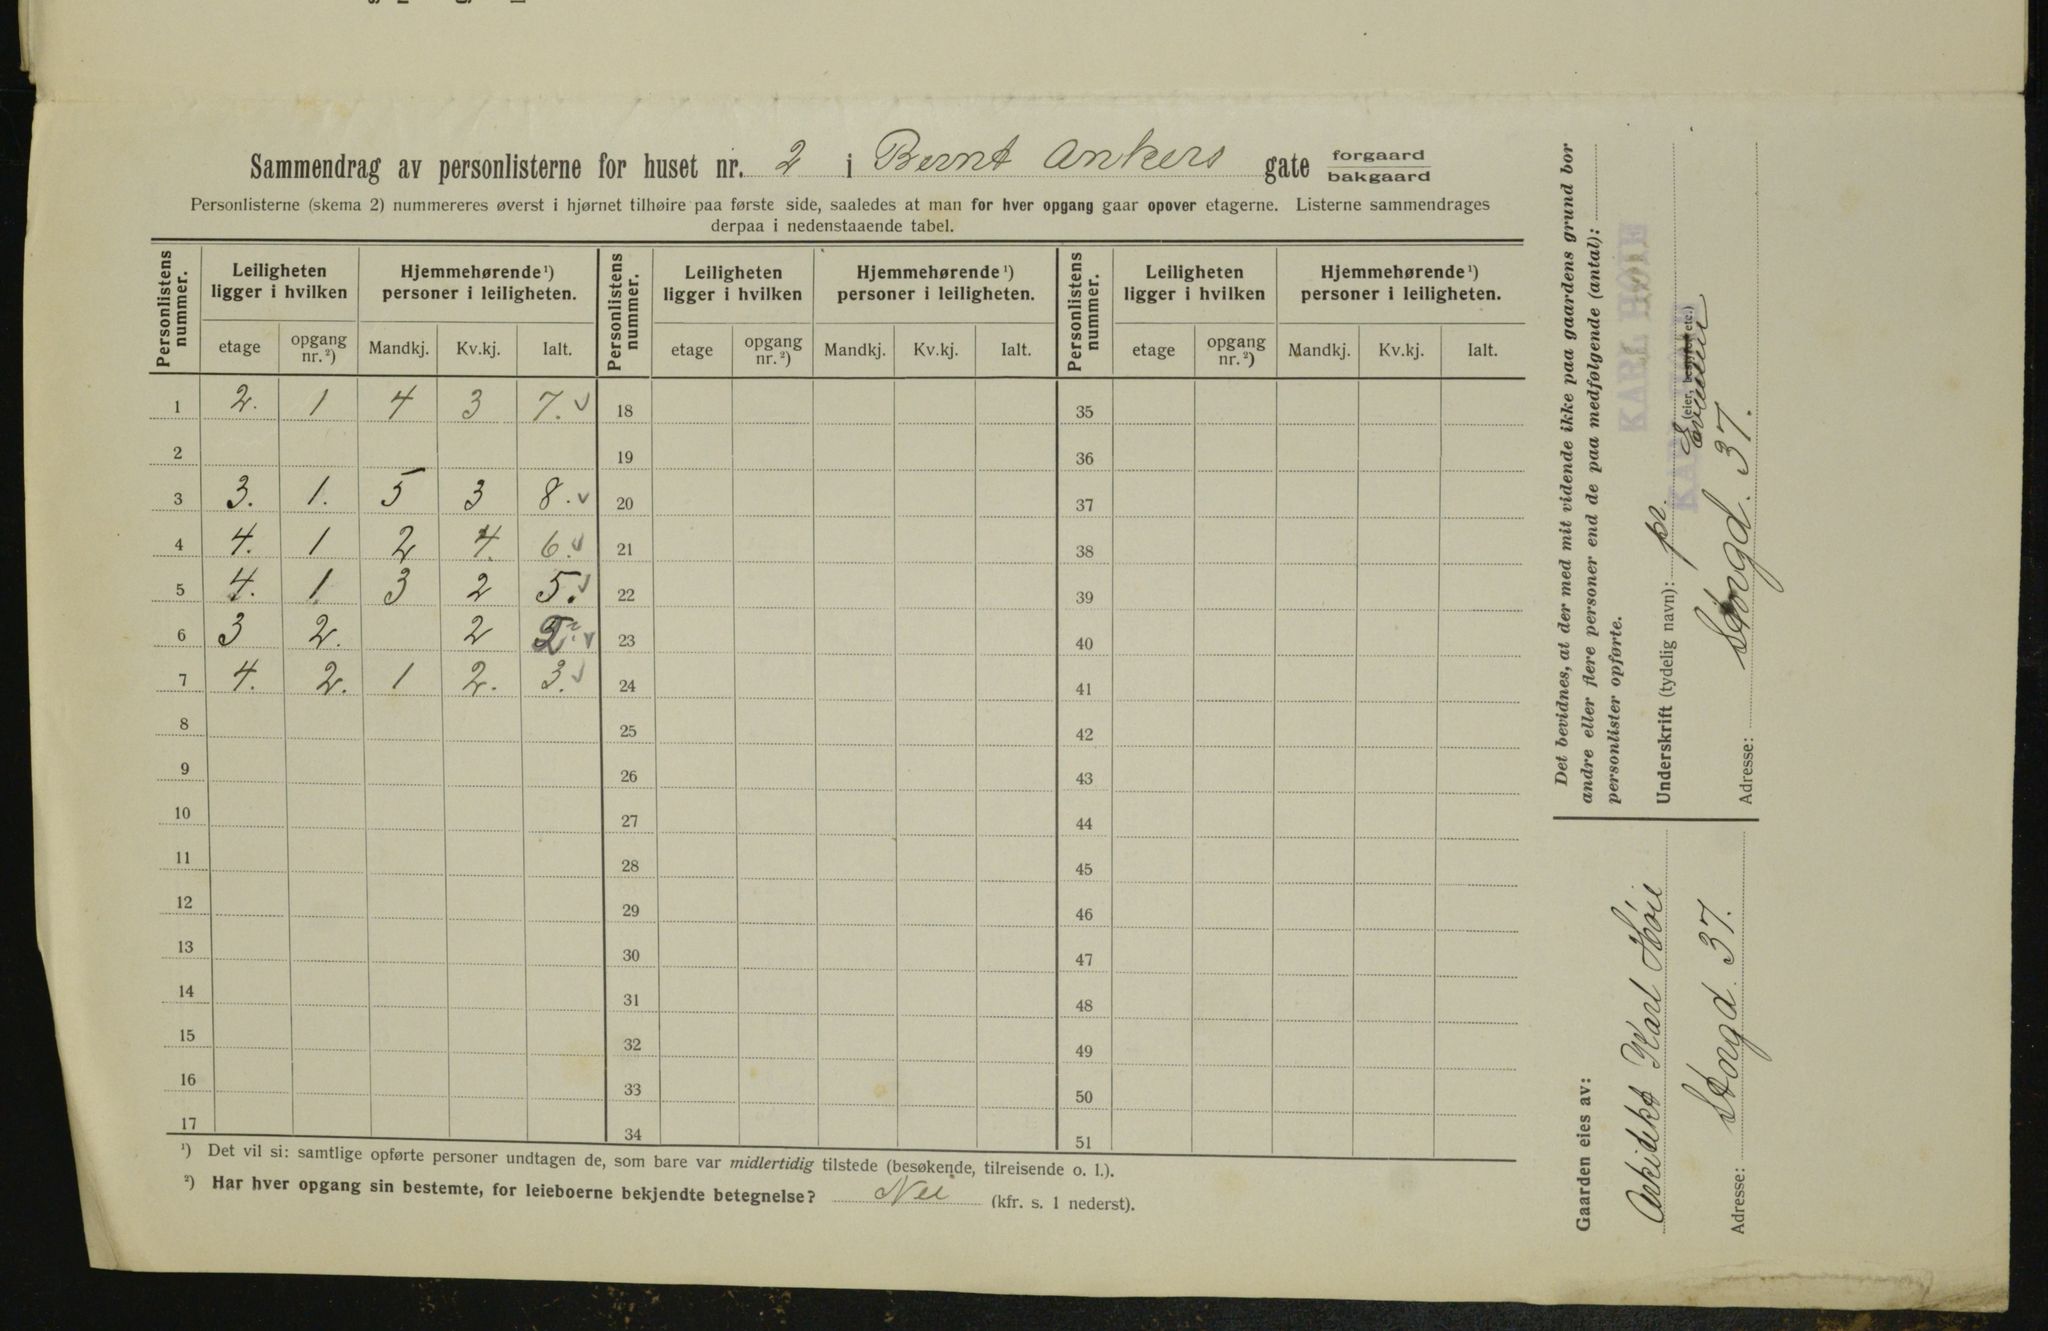 Sammendrag av personlisterne for huset nr. 2 i Bernt Ankers gate forgaard bakgaard
Personlisterne (skema 2) nummereres øverst i hjørnet tilhøire paa første side, saaledes at man for hver opgang gaar opover etagerne. Listerne sammendrages
derpaa i nedenstaaende tabel.
Personlistens nummer. Leiligheten ligger i hvilken Hjemmehørende ¹) personer i leiligheten. Personlistens nummer. Leiligheten ligger i hvilken Hjemmehørende ¹) personer i leiligheten. Personlistens nummer. Leiligheten ligger i hvilken Hjemmehørende ¹) personer i leiligheten.
etage opgang nr. ²) Mandkj. Kv.kj. Ialt. etage opgang nr. ²) Mandkj. Kv.kj. Ialt. etage opgang nr. ²) Mandkj. Kv.kj. Ialt.
1 2. 1 4 3 7. 18 35
2 19 36
3 3. 1. 5 3 8. 20 37
4 4. 1 2 4. 6. 21 38
5 4. 1 3 2 5. 22 39
6 3 2. 2 2. 23 40
7 4. 2. 1 2. 3. 24 41
8 25 42
9 26 43
10 27 44
11 28 45
12 29 46
13 30 47
14 31 48
15 32 49
16 33 50
17 34 51
¹) Det vil si: samtlige opførte personer undtagen de, som bare var midlertidig tilstede (besøkende, tilreisende o. l.).
²) Har hver opgang sin bestemte, for leieboerne bekjendte betegnelse? Nei (kfr. s. 1 nederst).
Det bevidnes, at der med mit vidende ikke paa gaardens grund bor
andre eller flere personer end de paa medfølgende (antal):
personlister opførte.
KARL HØIE
Underskrift (tydelig navn): pr. KARL HØIE
(eier, bestyrer etc.)
Adresse: Storgd. 37.
Gaarden eies av:
Arkitekt Karl Höie
Adresse: Storgd. 37.